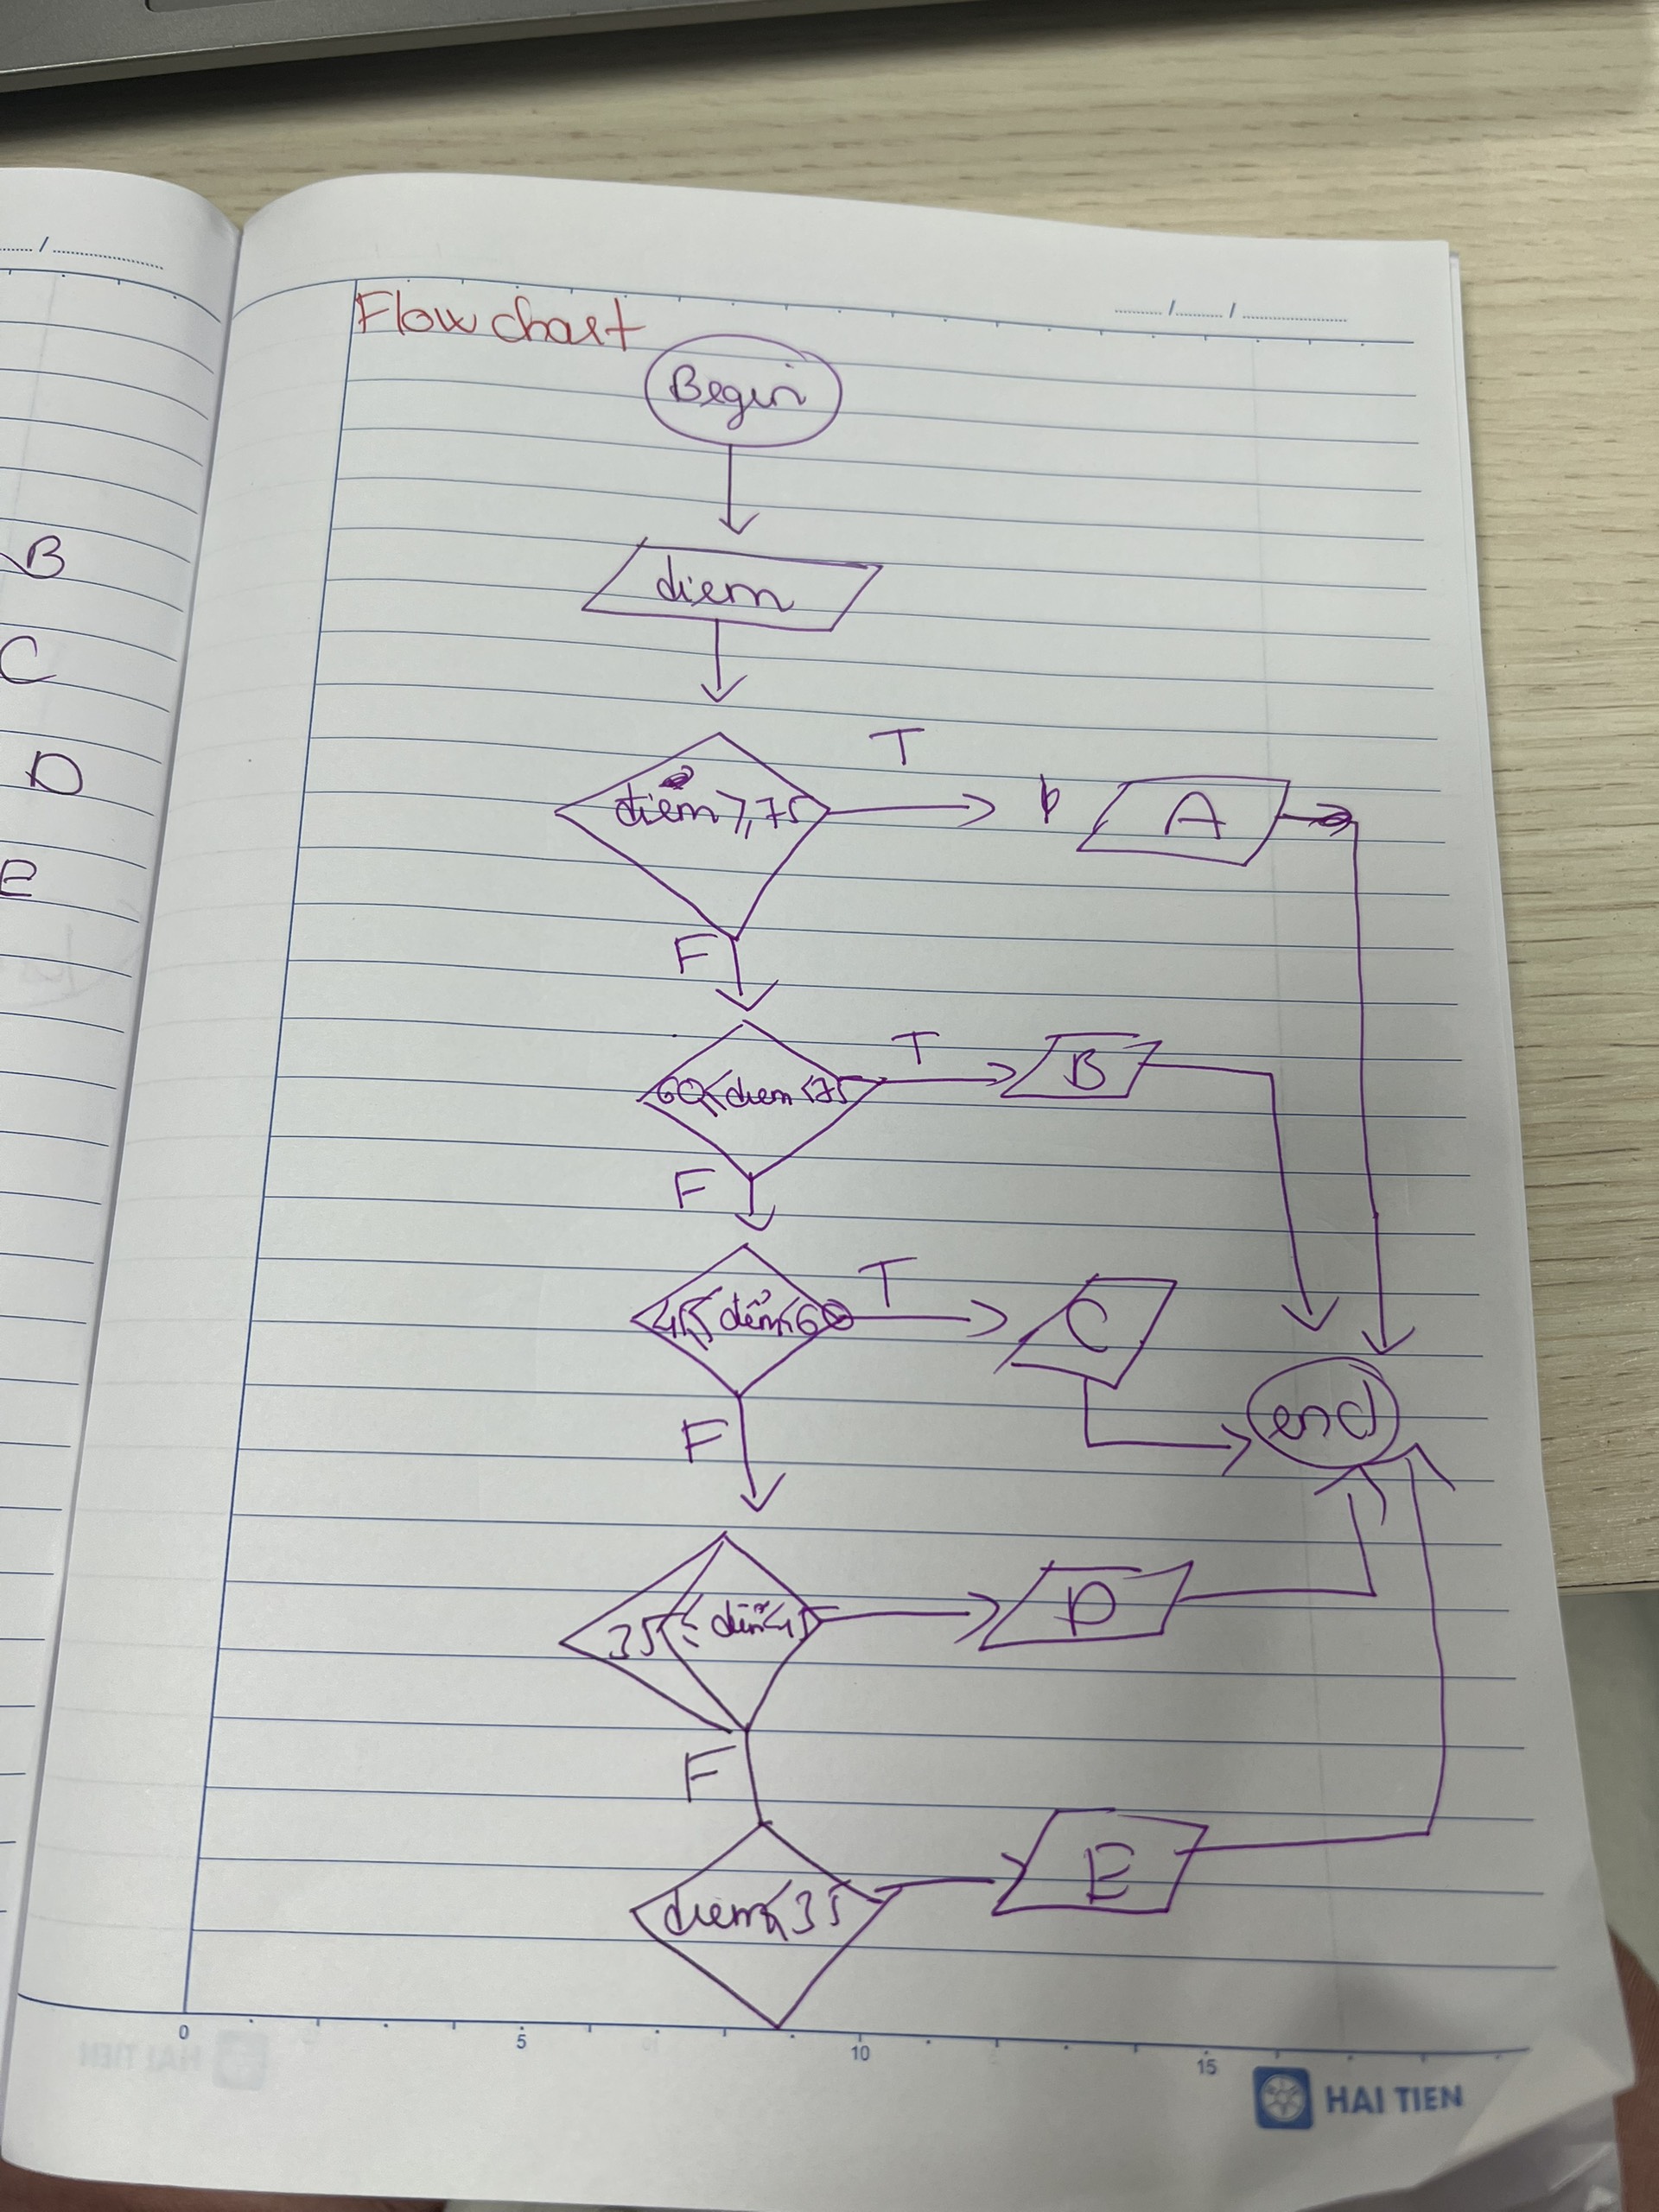 Flow chart
Begin
diem
B
C
điểm ≥ 75
T
A
D
E
F
60 ≤ diem < 75
T
B
F
45 ≤ điểm < 60
T
C
end
F
35 ≤ điểm < 45
D
F
diem < 35
E
0 5 10 15
HAI TIEN